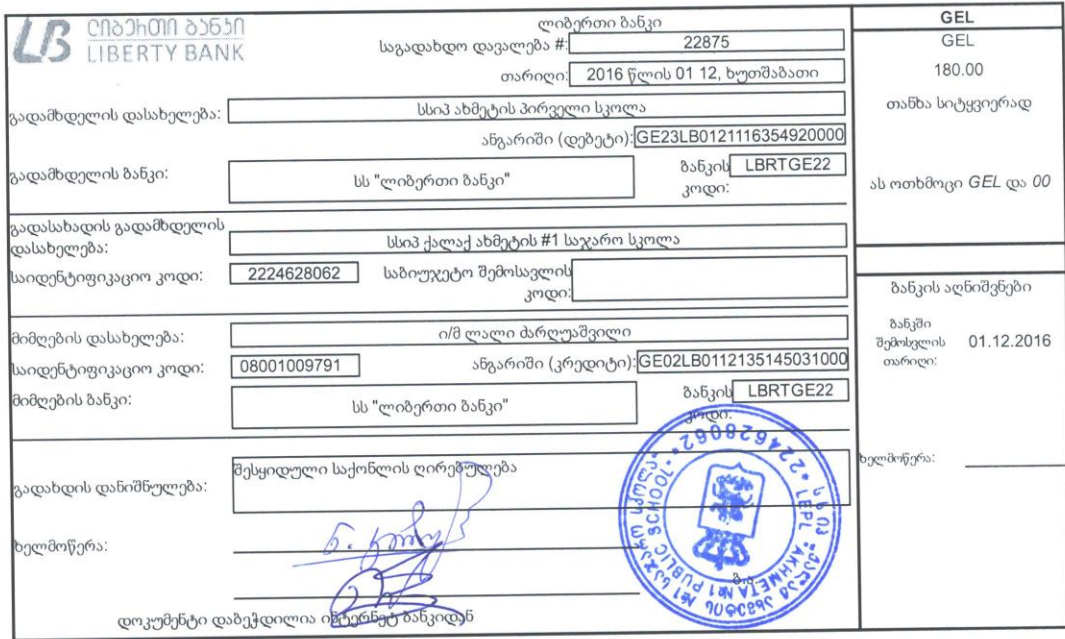 LB ლიბერთი ბანკი
LIBERTY BANK
ლიბერთი ბანკი
საგადახდო დავალება #: 22875
თარიღი: 2016 წლის 01 12, ხუთშაბათი
გადამხდელის დასახელება: სსიპ ახმეტის პირველი სკოლა
ანგარიში (დებეტი): GE23LB0121116354920000
გადამხდელის ბანკი: სს "ლიბერთი ბანკი" ბანკის კოდი: LBRTGE22
გადასახადის გადამხდელის
დასახელება: სსიპ ქალაქ ახმეტის #1 საჯარო სკოლა
საიდენტიფიკაციო კოდი: 2224628062 საბიუჯეტო შემოსავლის
კოდი:
მიმღების დასახელება: ი/მ ლალი ძარღუაშვილი
საიდენტიფიკაციო კოდი: 08001009791 ანგარიში (კრედიტი): GE02LB0112135145031000
მიმღების ბანკი: სს "ლიბერთი ბანკი" ბანკის კოდი: LBRTGE22
გადახდის დანიშნულება: შესყიდული საქონლის ღირებულება
ხელმოწერა:
ბ.ა.
დოკუმენტი დაბეჭდილია ინტერნეტ ბანკიდან
GEL
GEL
180.00
თანხა სიტყვიერად
ას ოთხმოცი GEL და 00
ბანკის აღნიშვნები
ბანკში
შემოსვლის 01.12.2016
თარიღი:
ხელმოწერა:
სსიპ "ქალაქ ახმეტის №1 საჯარო სკოლა"
LEPL "AKHMETA №1 PUBLIC SCHOOL"
*224628062*